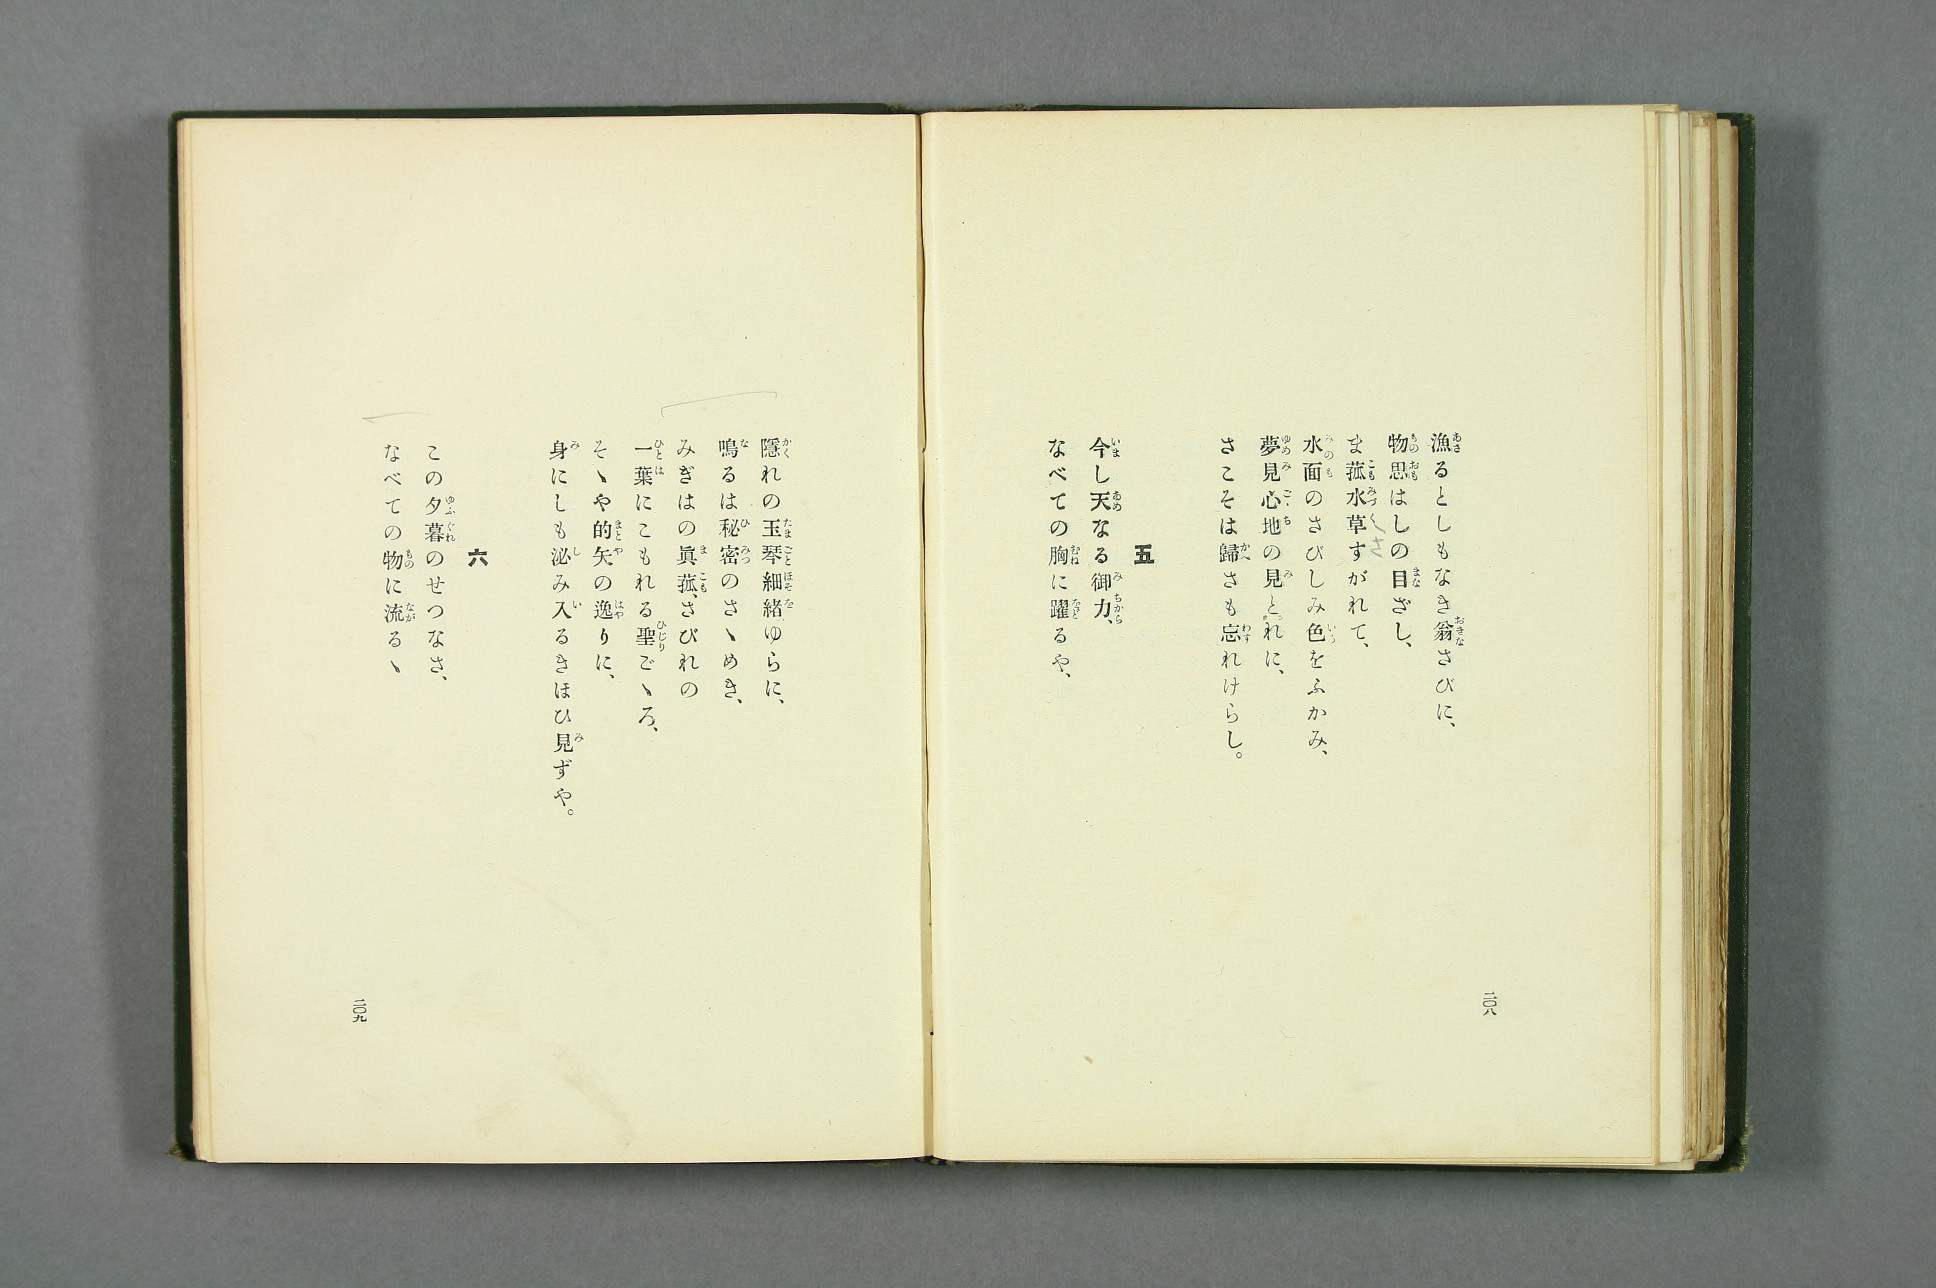 漁るとしもなき翁さびに、
物思はしの目ざし、
ま菰水草すがれて、
水面のさびしみ色をふかみ、
夢見心地の見とれに、
さこそは歸さも忘れけらし。
五
今し天なる御力、
なべての胸に躍るや、
二〇八
隱れの玉琴細緒ゆらに、
鳴るは秘密のさゝめき、
みぎはの眞菰、さびれの
一葉にこもれる聖ごゝろ、
そゝや的矢の逸りに、
身にしも泌み入るきほひ見ずや。
六
この夕暮のせつなさ、
なべての物に流るゝ
二〇九